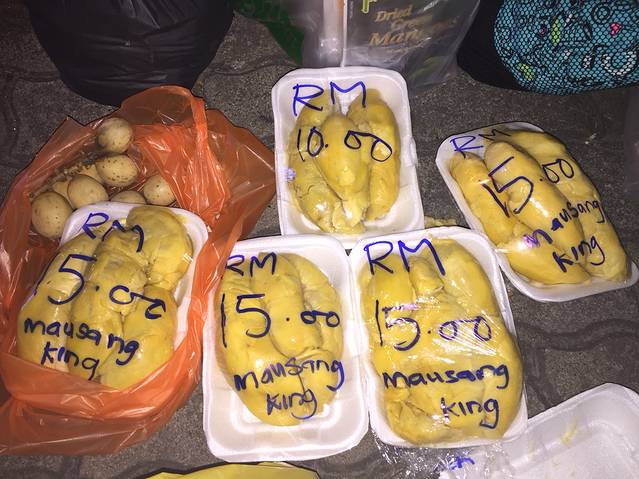 Dried
Green
RM
10.00
RM
15.00
mausang
king
RM
5.00
mausang
king
RM
15.00
mausang
king
RM
15.00
mausang
king